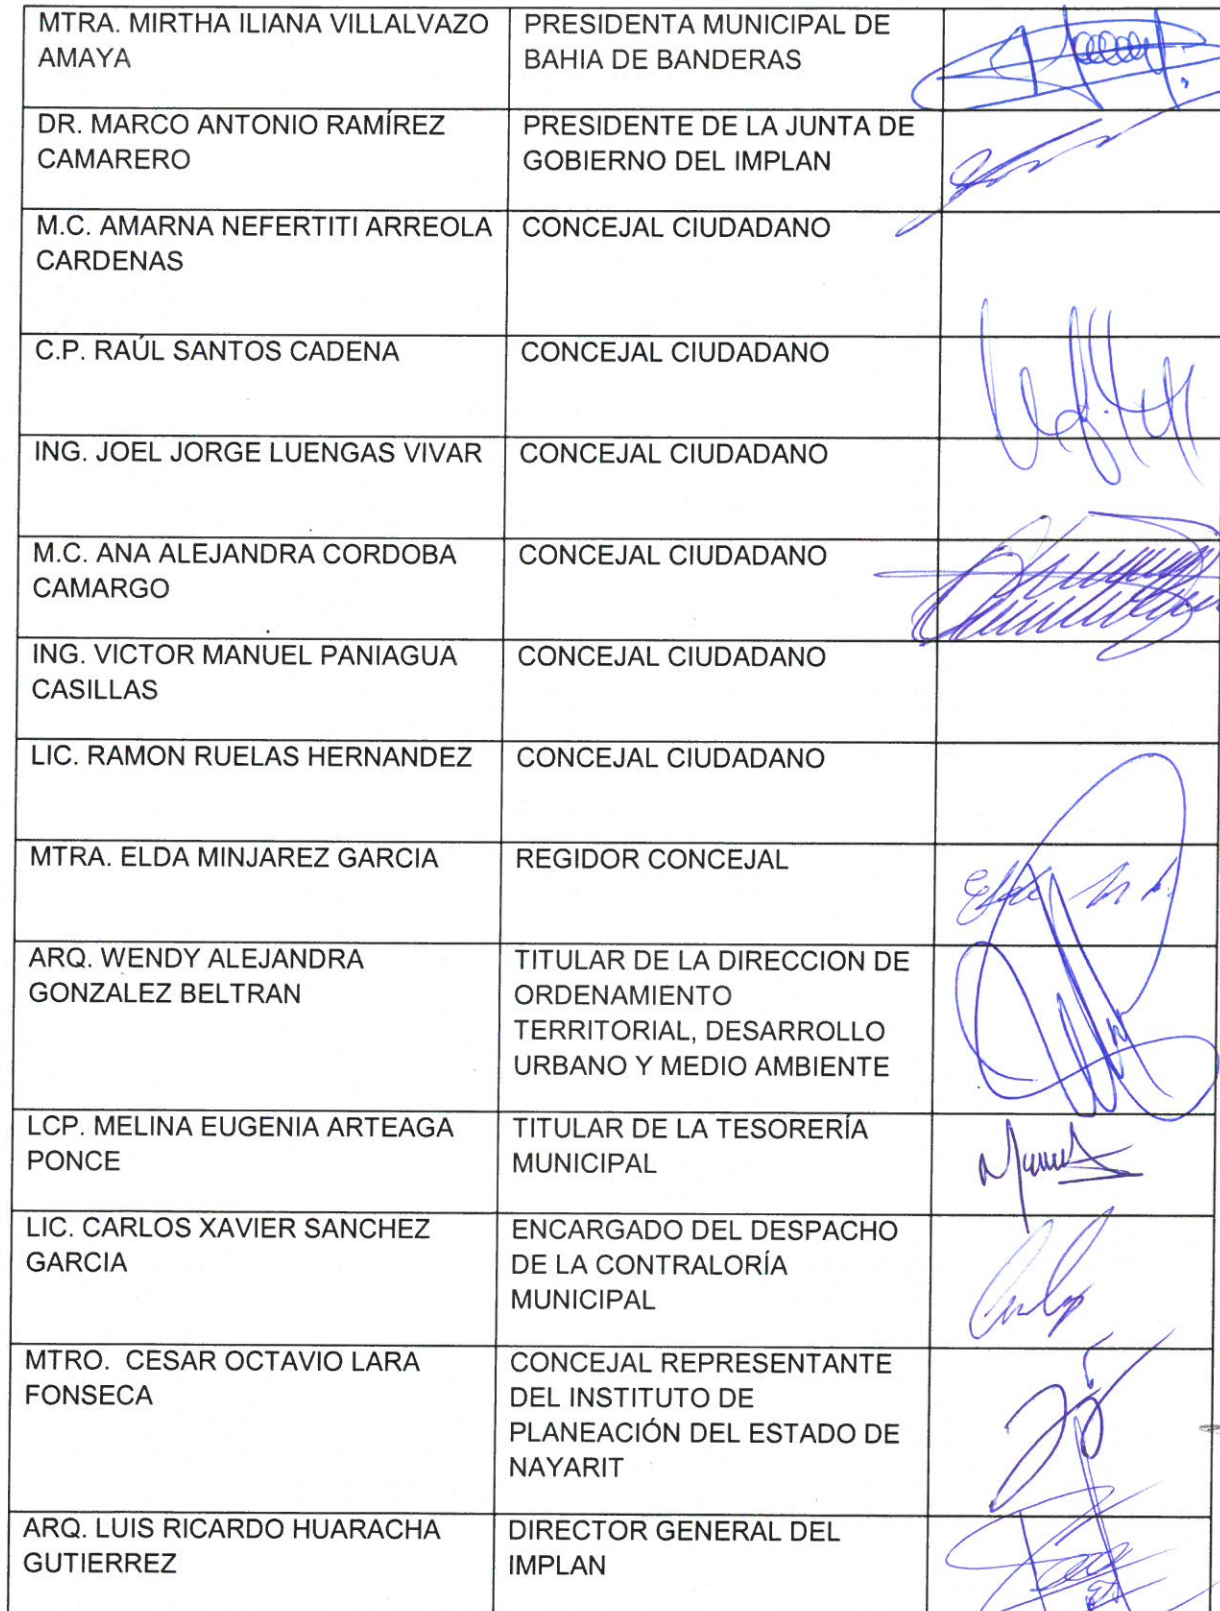 MTRA. MIRTHA ILIANA VILLALVAZO
AMAYA
PRESIDENTA MUNICIPAL DE
BAHIA DE BANDERAS
DR. MARCO ANTONIO RAMÍREZ
CAMARERO
PRESIDENTE DE LA JUNTA DE
GOBIERNO DEL IMPLAN
M.C. AMARNA NEFERTITI ARREOLA
CARDENAS
CONCEJAL CIUDADANO
C.P. RAÚL SANTOS CADENA
CONCEJAL CIUDADANO
ING. JOEL JORGE LUENGAS VIVAR
CONCEJAL CIUDADANO
M.C. ANA ALEJANDRA CORDOBA
CAMARGO
CONCEJAL CIUDADANO
ING. VICTOR MANUEL PANIAGUA
CASILLAS
CONCEJAL CIUDADANO
LIC. RAMON RUELAS HERNANDEZ
CONCEJAL CIUDADANO
MTRA. ELDA MINJAREZ GARCIA
REGIDOR CONCEJAL
ARQ. WENDY ALEJANDRA
GONZALEZ BELTRAN
TITULAR DE LA DIRECCION DE
ORDENAMIENTO
TERRITORIAL, DESARROLLO
URBANO Y MEDIO AMBIENTE
LCP. MELINA EUGENIA ARTEAGA
PONCE
TITULAR DE LA TESORERÍA
MUNICIPAL
LIC. CARLOS XAVIER SANCHEZ
GARCIA
ENCARGADO DEL DESPACHO
DE LA CONTRALORÍA
MUNICIPAL
MTRO. CESAR OCTAVIO LARA
FONSECA
CONCEJAL REPRESENTANTE
DEL INSTITUTO DE
PLANEACIÓN DEL ESTADO DE
NAYARIT
ARQ. LUIS RICARDO HUARACHA
GUTIERREZ
DIRECTOR GENERAL DEL
IMPLAN